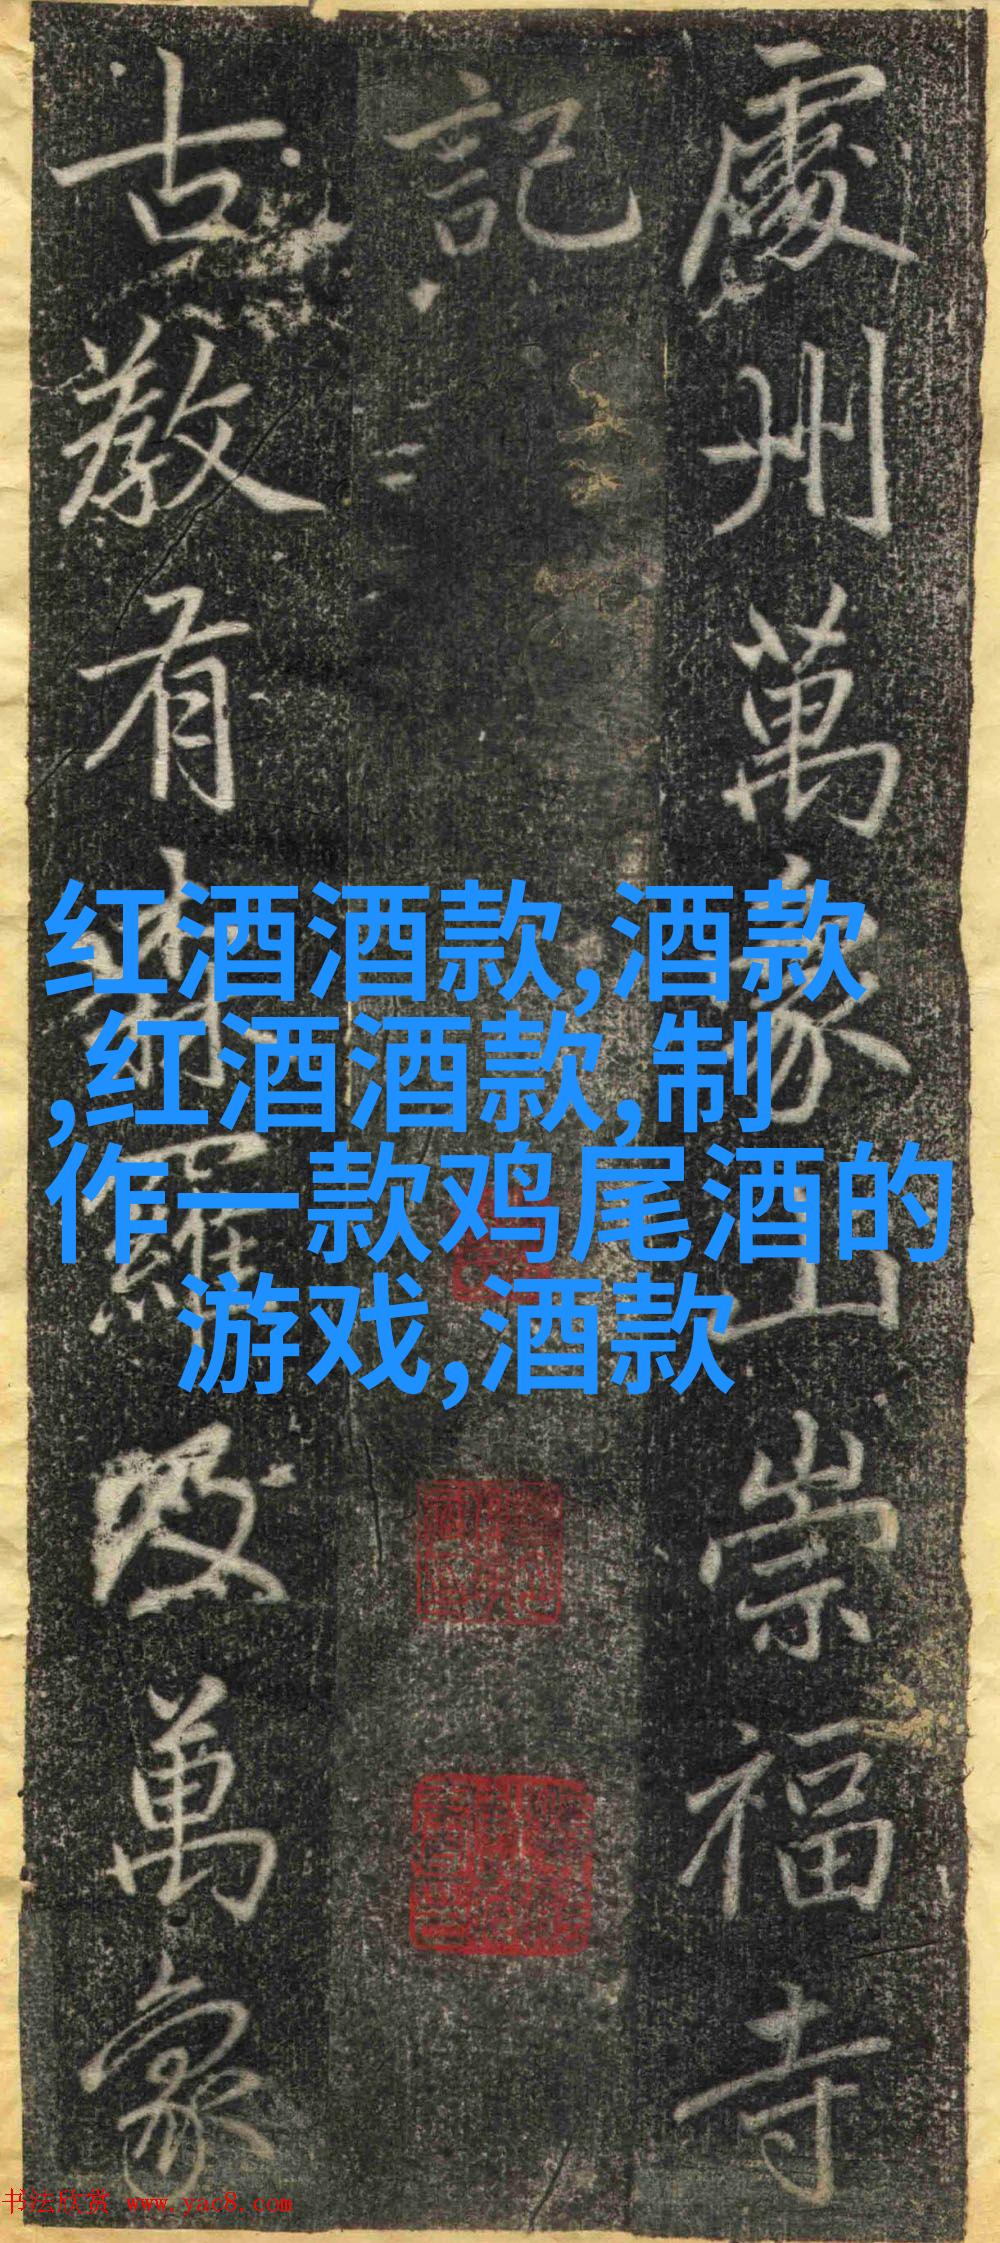 處州萬象山崇福寺
記
古教有羅及萬象
红酒酒款,酒款
,红酒酒款,制
作一款鸡尾酒的
游戏,酒款
书法欣赏 www.yac8.com